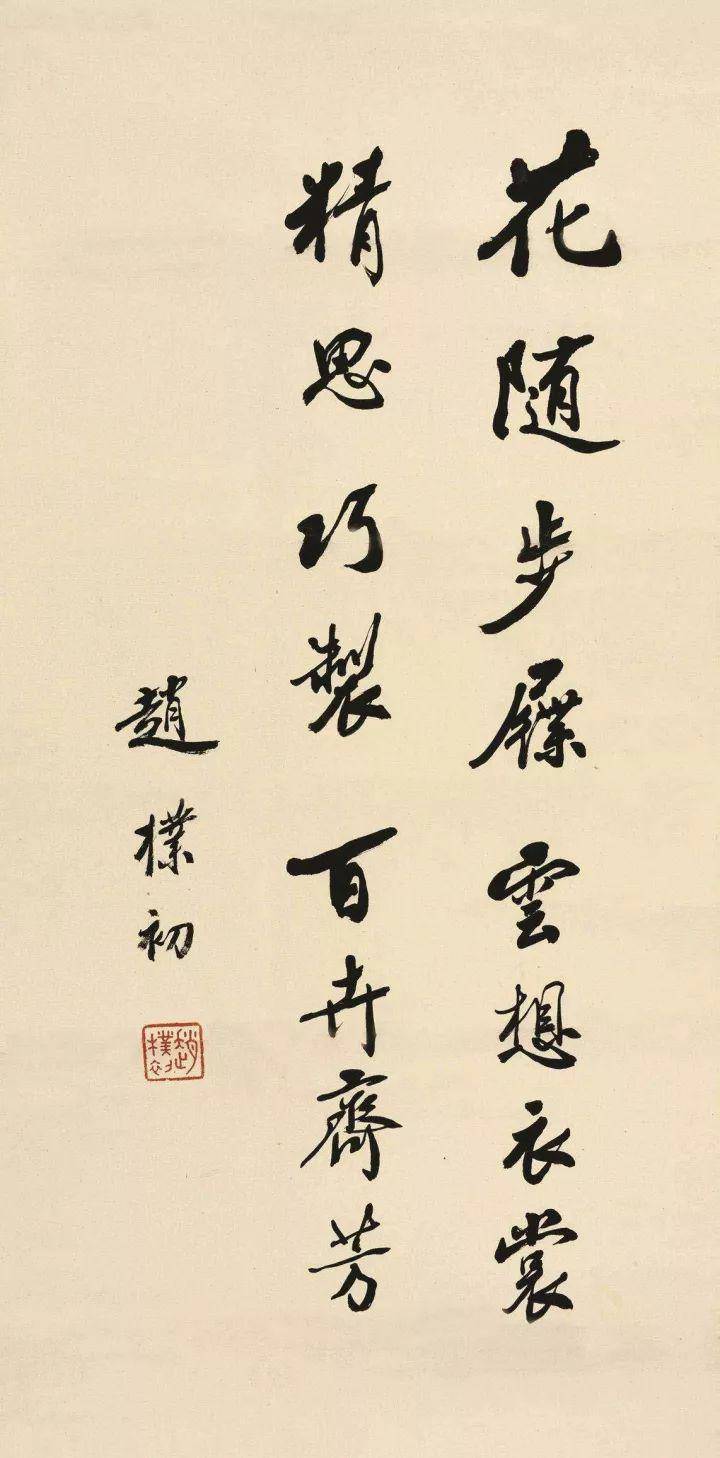 花隨步屧雲想衣裳
精思巧製百卉齊芳
趙樸初
趙樸初